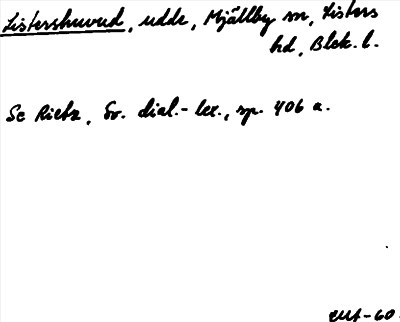 Listershuvud, udde, Mjällby sn, Listers
hd, Blek. l.
Se Rietz, Sv. dial.-lex., sp. 406 a.